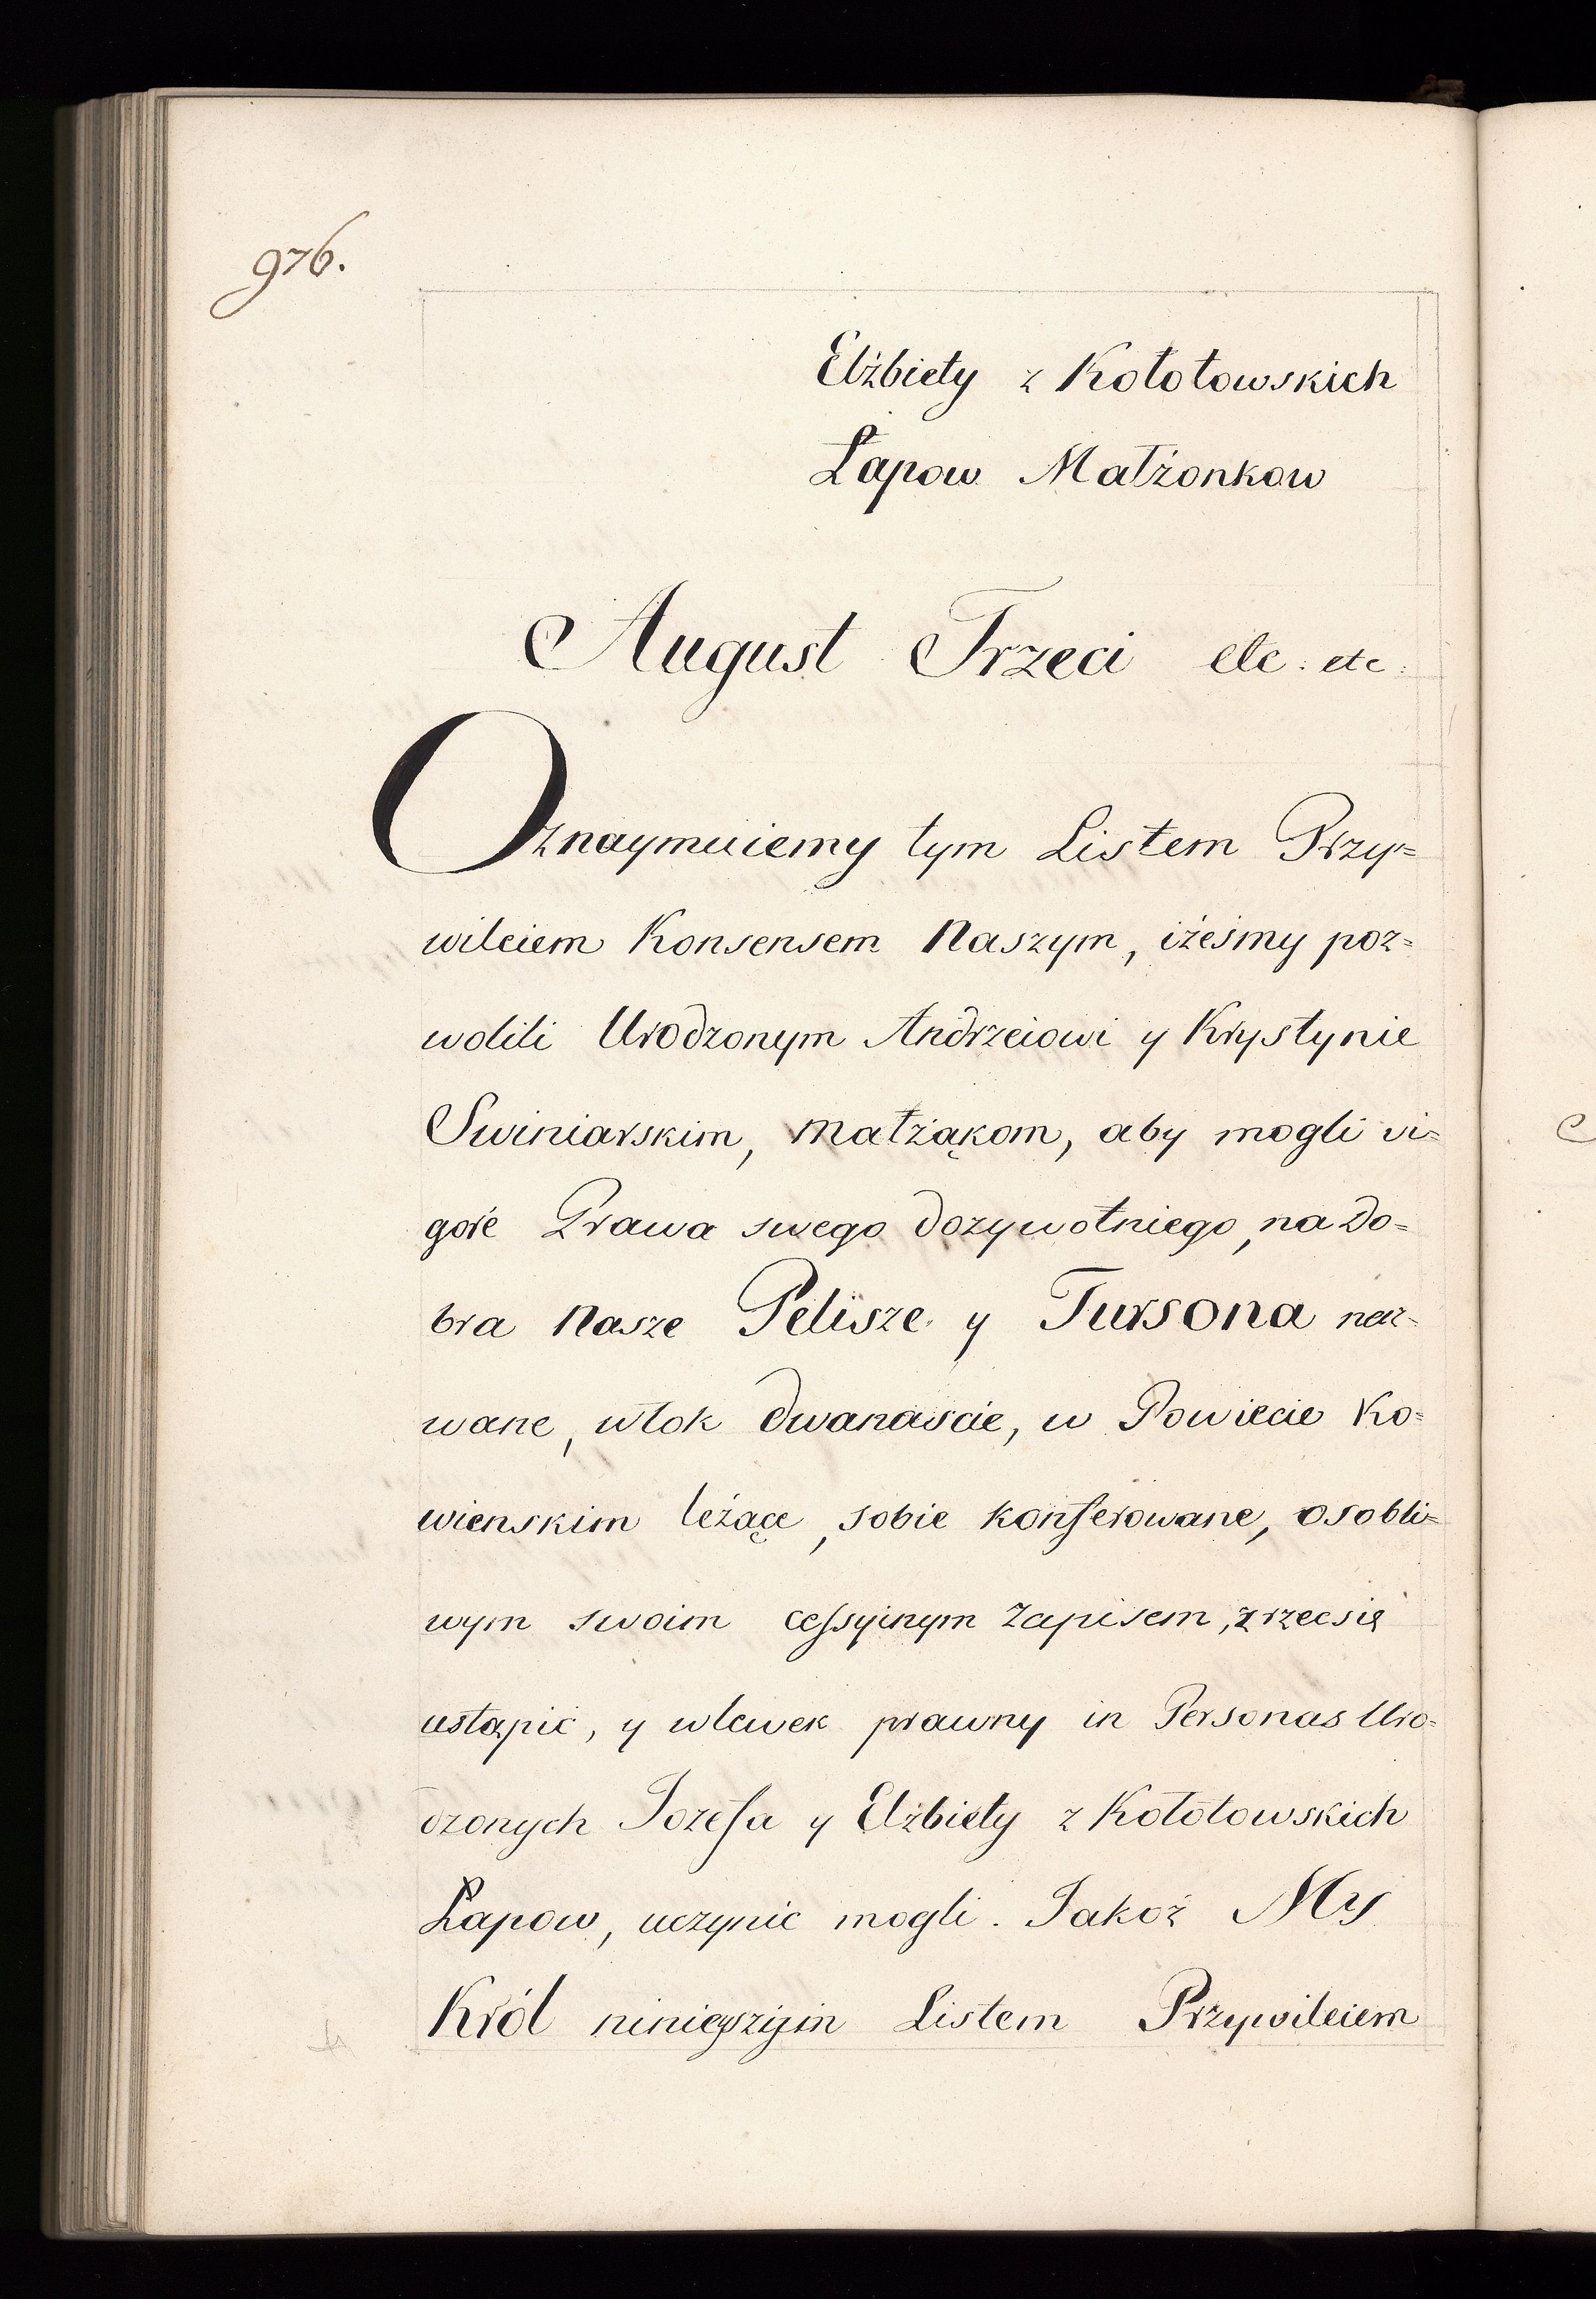 976.
Elżbiety z Kołołowskich
Łapow Małżonkow
August Trzeci etc: etc:
Oznaymuiemy tym Listem Przy=
wileiem Konsensem Naszym, iżeśmy poz=
wolili Urodzonym Andrzeiowi y Krystynie
Swiniarskim, Małżąkom, aby mogli vi=
gore Prawa swego dozywotniego, na do=
bra Nasze Pelisze y Tursona naz=
wane, włok dwanascie, w Powiecie Ko=
wienskim leżące, sobie konferowane, osobli=
wym swoim cessyinym zapisem, zrzec się
ustąpic, y wlewek prawny in Personas Uro=
dzonych Jozefa y Elżbiety z Kołołowskich
Łapow, uczynic mogli. Jakoż My
Król ninieyszym Listem Przywileiem